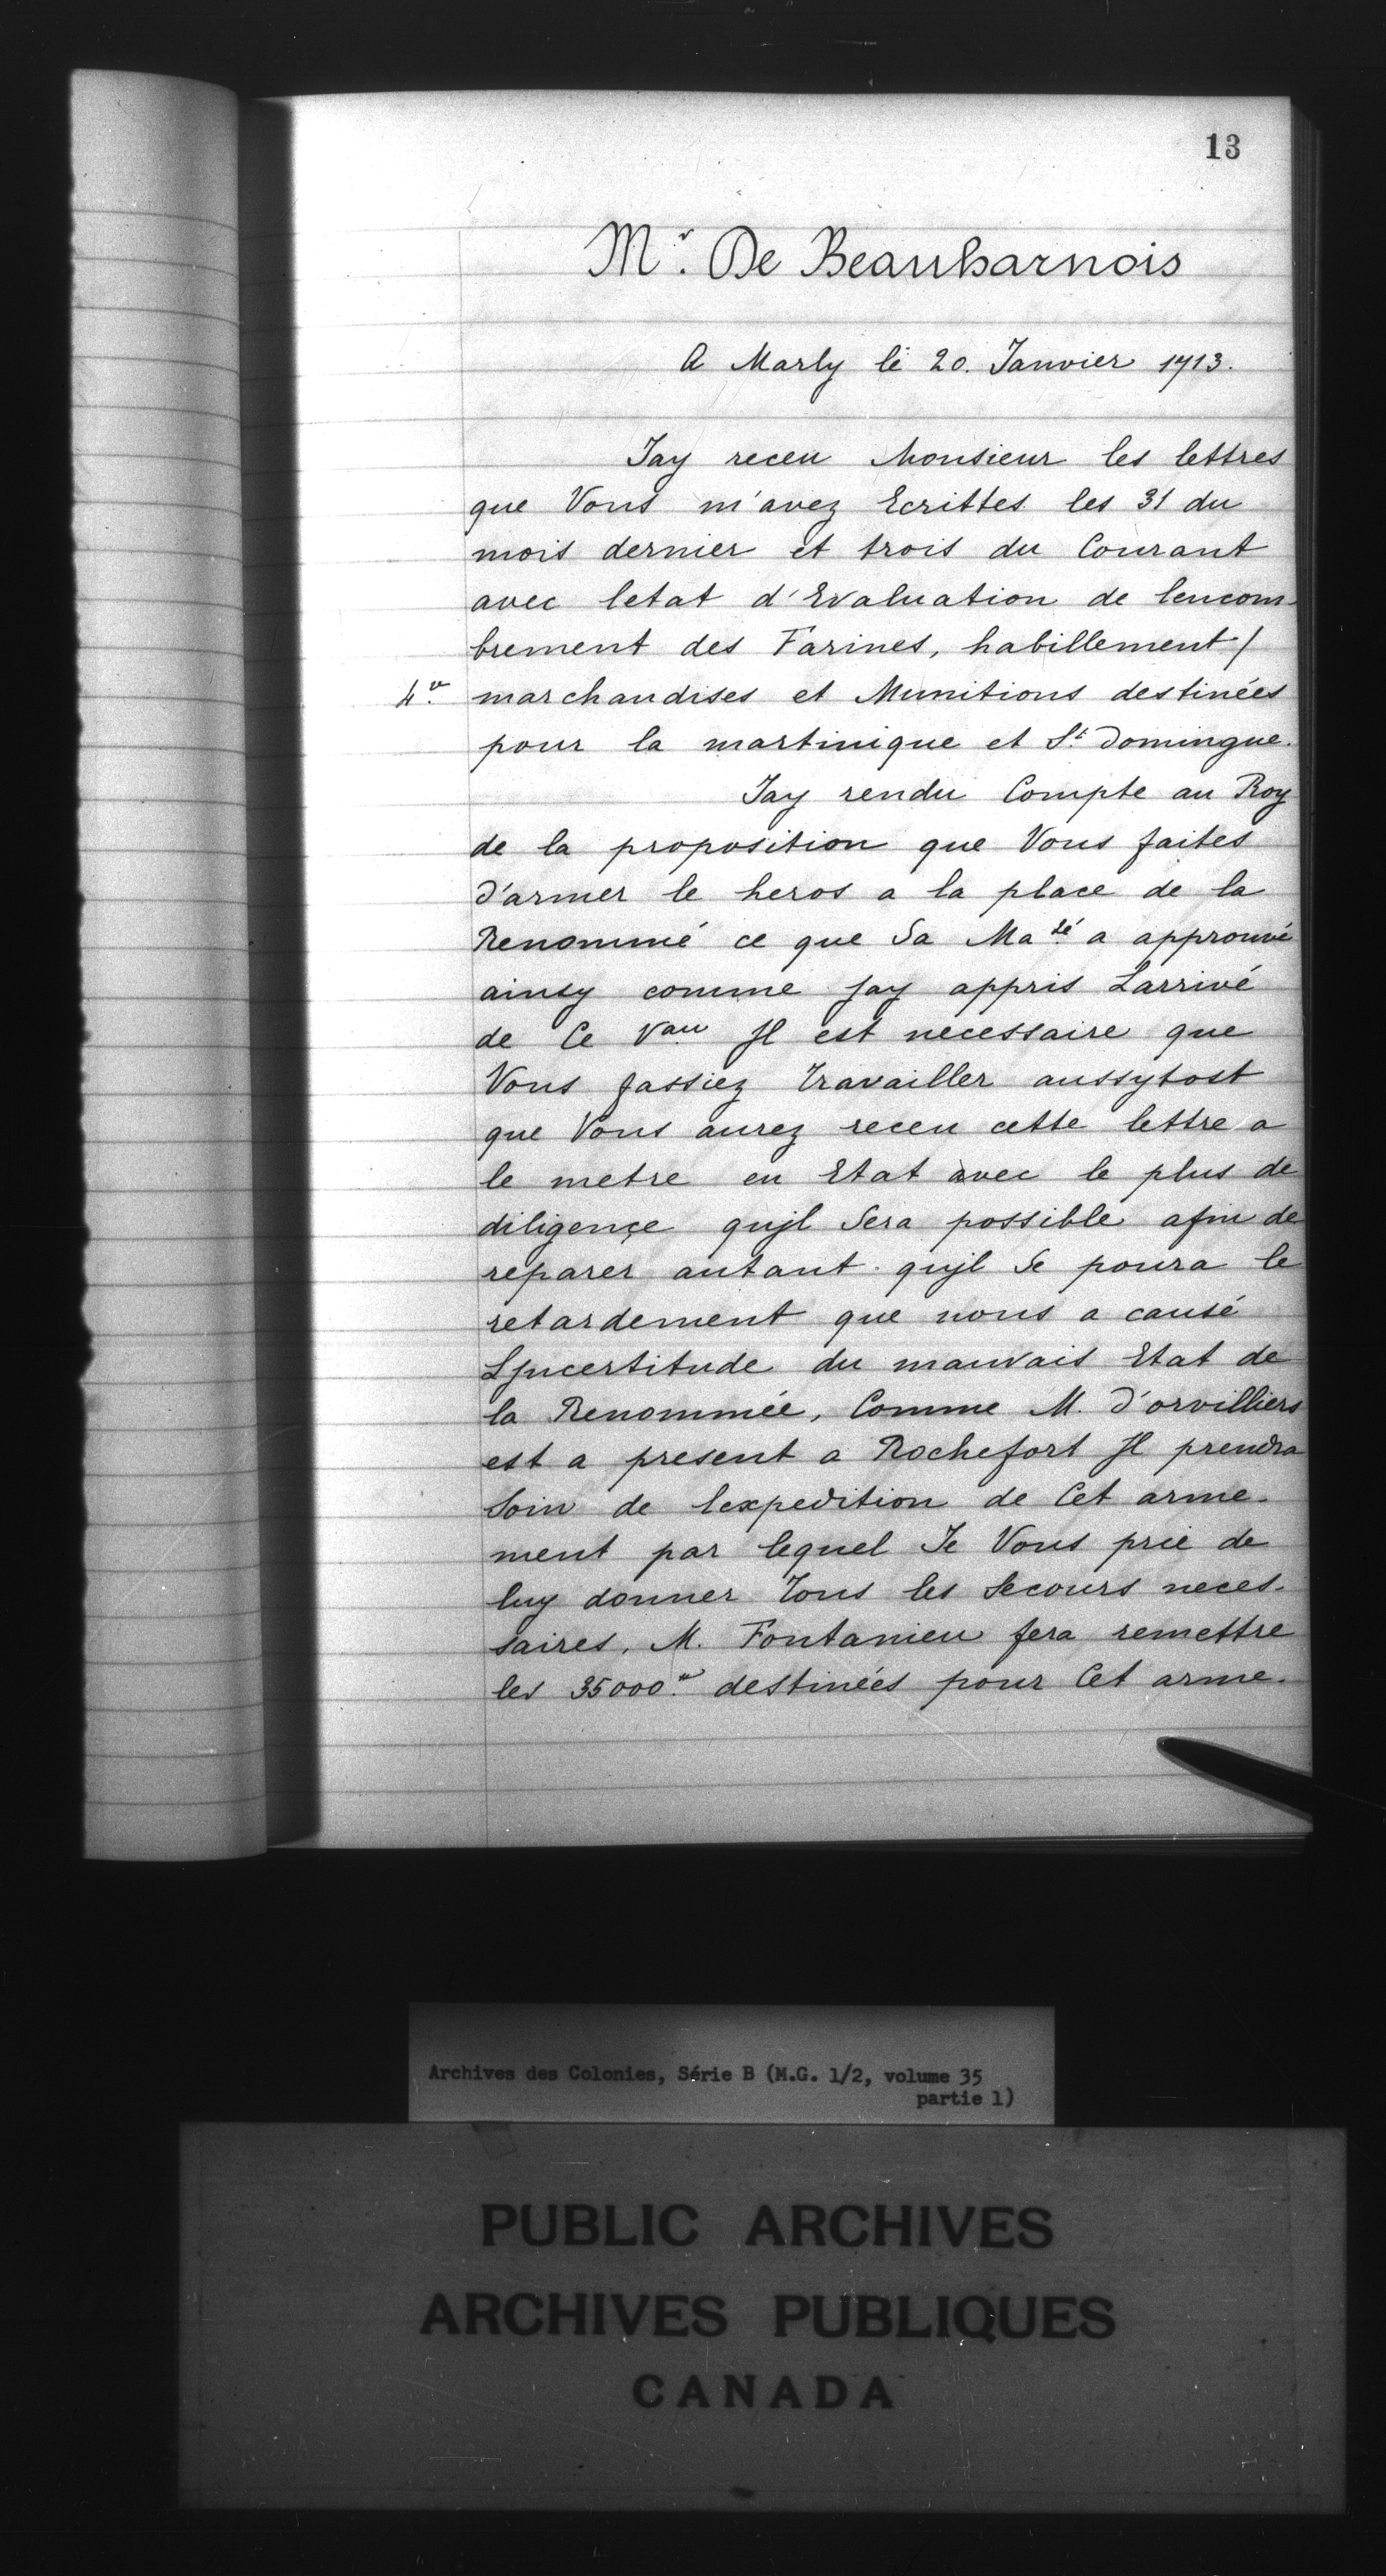 13
Mr. De Beauharnois
A Marly le 20. Janvier 1713.
Jay receu Monsieur les lettres
que Vous m'avez Ecrittes les 31 du
mois dernier et trois du Courant
avec letat d'Evaluation de lencom-
brement des Farines, habillement /
4v. marchandises et Munitions destinées
pour la martinique et St. Domingue.
Jay rendu Compte au Roy
de la proposition que Vous faites
d'armer le heros a la place de la
Renommé ce que Sa Maté a approuvé
ainsy comme jay appris Larrivé
de Ce Vau Jl est necessaire que
Vous fassiez travailler aussytost
que Vous aurez receu cette lettre a
le metre en Etat avec le plus de
diligençe qujl Sera possible afin de
reparer autant qujl Se poura le
retardement que nous a causé
LJncertitude du mauvais Etat de
la Renommée, Comme M. d'orvilliers
est a present a Rochefort Jl prendra
Soin de lexpedition de Cet arme-
ment par lequel Je Vous prie de
luy donner tous les Secours neces-
saires. M. Fontanieu fera remettre
les 35000.tt destinées pour Cet arme-
Archives des Colonies, Série B (M.G. 1/2, volume 35
partie 1)
PUBLIC ARCHIVES
ARCHIVES PUBLIQUES
CANADA